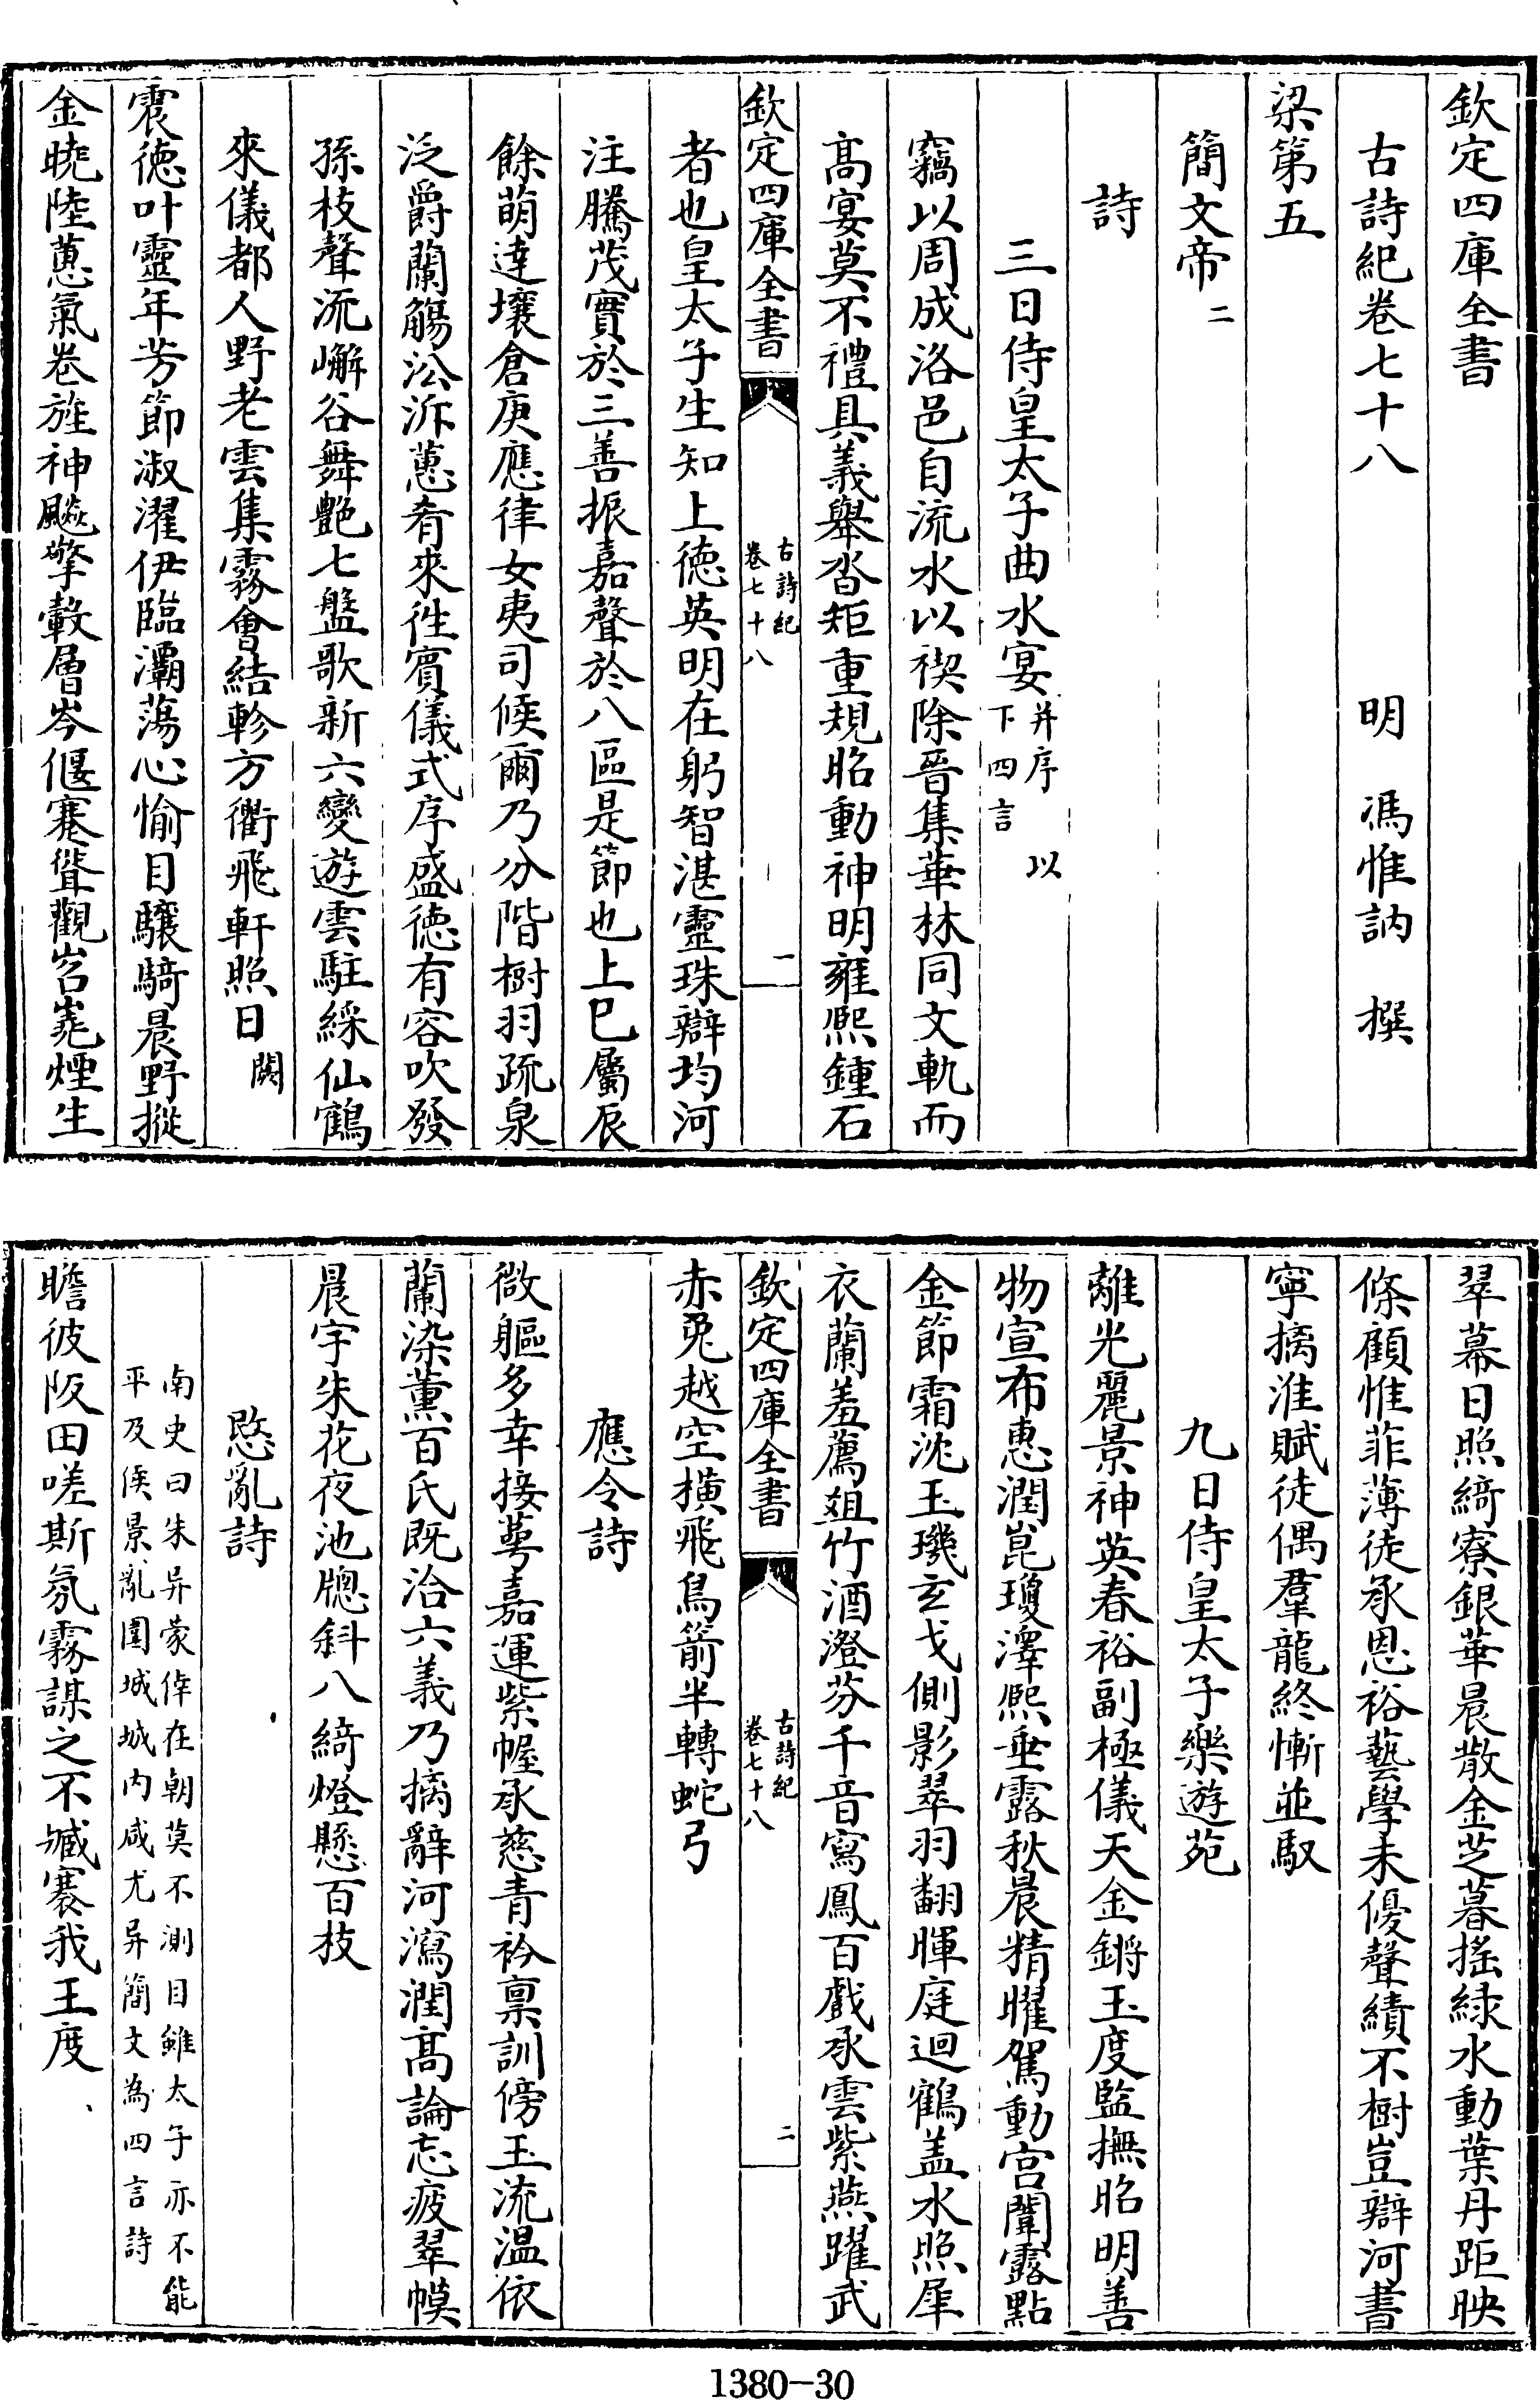 欽定四庫全書
古詩紀卷七十八　　　　明　馮惟訥　撰
梁第五
簡文帝二
詩
三日侍皇太子曲水宴并序　以下四言
竊以周成洛邑自流水以禊除晉集華林同文軌而
高宴莫不禮具義舉沓矩重規昭動神明雍熙鍾石
欽定四庫全書　古詩紀卷七十八　一
者也皇太子生知上徳英明在躬智湛靈珠辯均河
注騰茂實於三善振嘉聲於八區是節也上巳屬辰
餘萌達壤倉庚應律女夷司候爾乃分階樹羽疏泉
泛爵蘭觴沿泝蕙肴來徃賓儀式序盛徳有容吹發
孫枝聲流嶰谷舞艶七盤歌新六變遊雲駐綵仙鶴
來儀都人野老雲集霧會結軫方衢飛軒照日闕
震徳叶靈年芳節淑濯伊臨灞蕩心愉目驤騎晨野摐
金曉陸蕙氣卷旌神飇擎轂層岑偃蹇聳觀岧嵬煙生
翠幕日照綺寮銀華晨散金芝暮搖緑水動葉丹距映
條顧惟菲薄徒承恩裕藝學未優聲績不樹豈辯河書
寧摛淮賦徒偶羣龍終慚並馭
九日侍皇太子樂遊苑
離光麗景神英春裕副極儀天金鏘玉度監撫昭明善
物宣布惠潤崑瓊澤熙垂露秋晨精曜駕動宫闈露點
金節霜沈玉璣玄戈側影翠羽翻暉庭迴鶴盖水照犀
衣蘭羞薦俎竹酒澄芬千音寫鳳百戲承雲紫燕躍武
欽定四庫全書　古詩紀卷七十八　二
赤兎越空横飛鳥箭半轉蛇弓
應令詩
微軀多幸接蕚嘉運紫幄承慈青衿禀訓傍玉流温依
蘭染薰百氏既洽六義乃摛辭河瀉潤髙論忘疲翠幙
晨宇朱花夜池牕斜八綺燈懸百枝
愍亂詩
南史曰朱异蒙倖在朝莫不測目雖太子亦不能
平及侯景亂圍城城内咸尤异簡文為四言詩
瞻彼阪田嗟斯氛霧謀之不臧褰我王度
1380-30